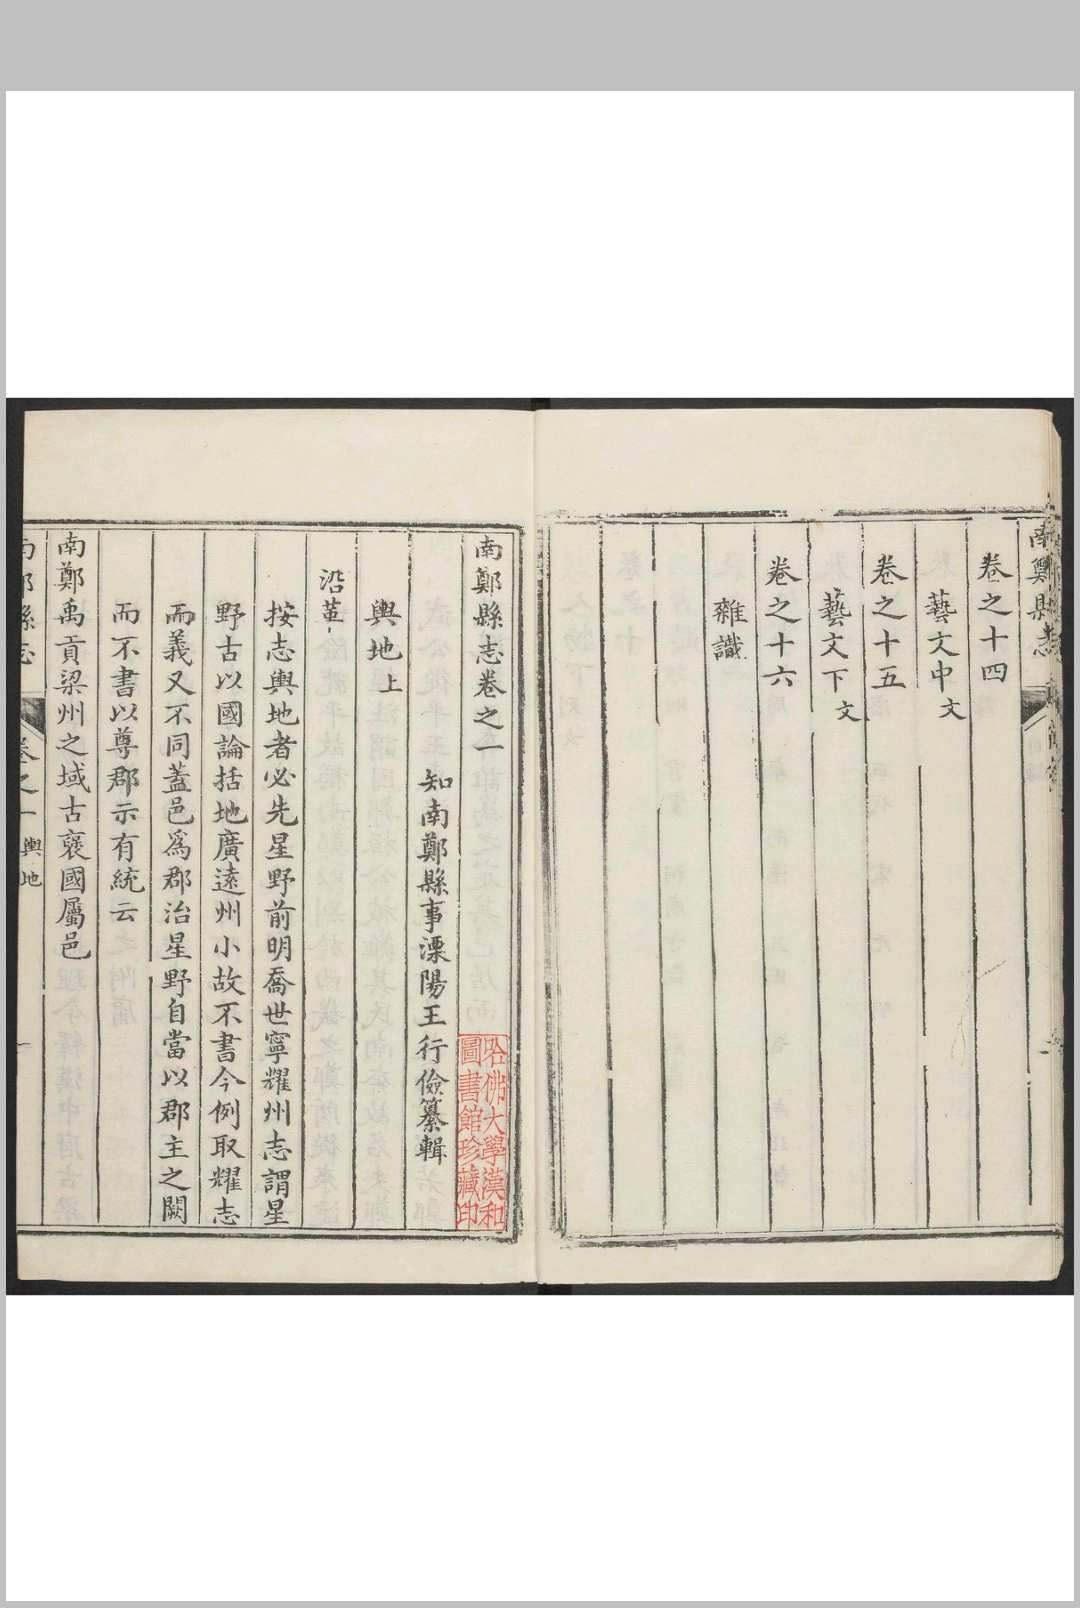 南鄭縣志
卷之十四
藝文中 文
卷之十五
藝文下 文
卷之十六
雜識
南鄭縣志卷之一
知南鄭縣事溧陽王行儉纂輯
輿地上
沿革
按志輿地者必先星野前明喬世寧耀州志謂星
野古以國論括地廣遠州小故不書今例取耀志
而義又不同蓋邑爲郡治星野自當以郡主之闕
而不書以尊郡示有統云
南鄭禹貢梁州之域古襃國屬邑
南鄭縣志 卷之一 輿地
哈佛大學漢和
圖書館珍藏印